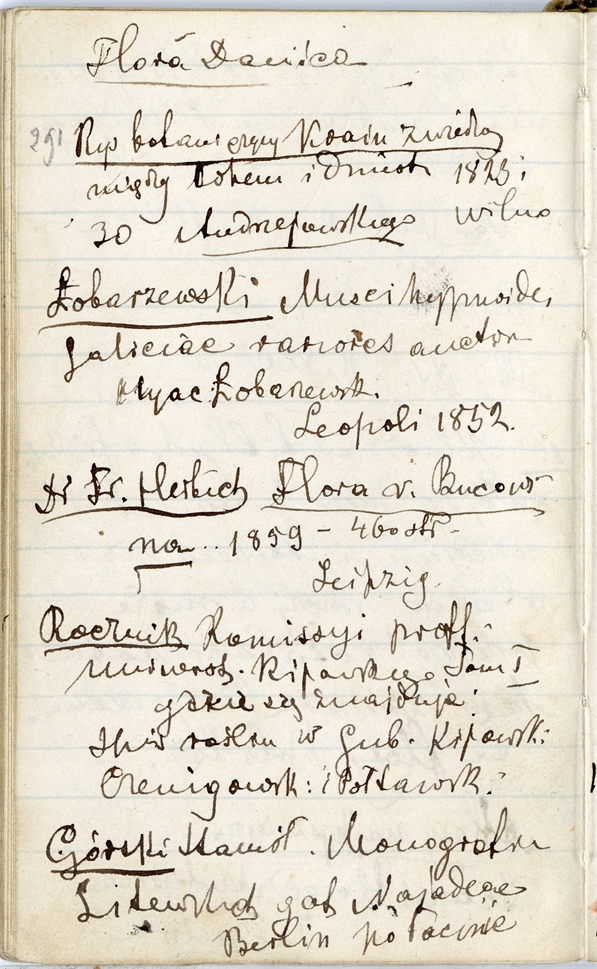 Flora Danica
291 Rys botaniczny Krain zwiedzo
między Bohem i Dniest. 1823;
30 Andrzejowskiego Wilno
Łobarzewski Musci hypnoide,
Galiciae rariores auctor
Hyac Łobarzewsk.
Leopoli 1852.
Dr Fr. Herbich Flora v. Bucowi
na .. 1859 - 460 str.
Leipzig.
Rocznik Komissyi proff:
uniwers. Kijowskiego Tom I
gdzie się znajduje:
Spis roślin w Gub. Kijowsk:
Czernigowsk: i Połtawsk:
Górski Stanisł. Monografia
Litewskich gat Najadeae
Berlin po łacinie